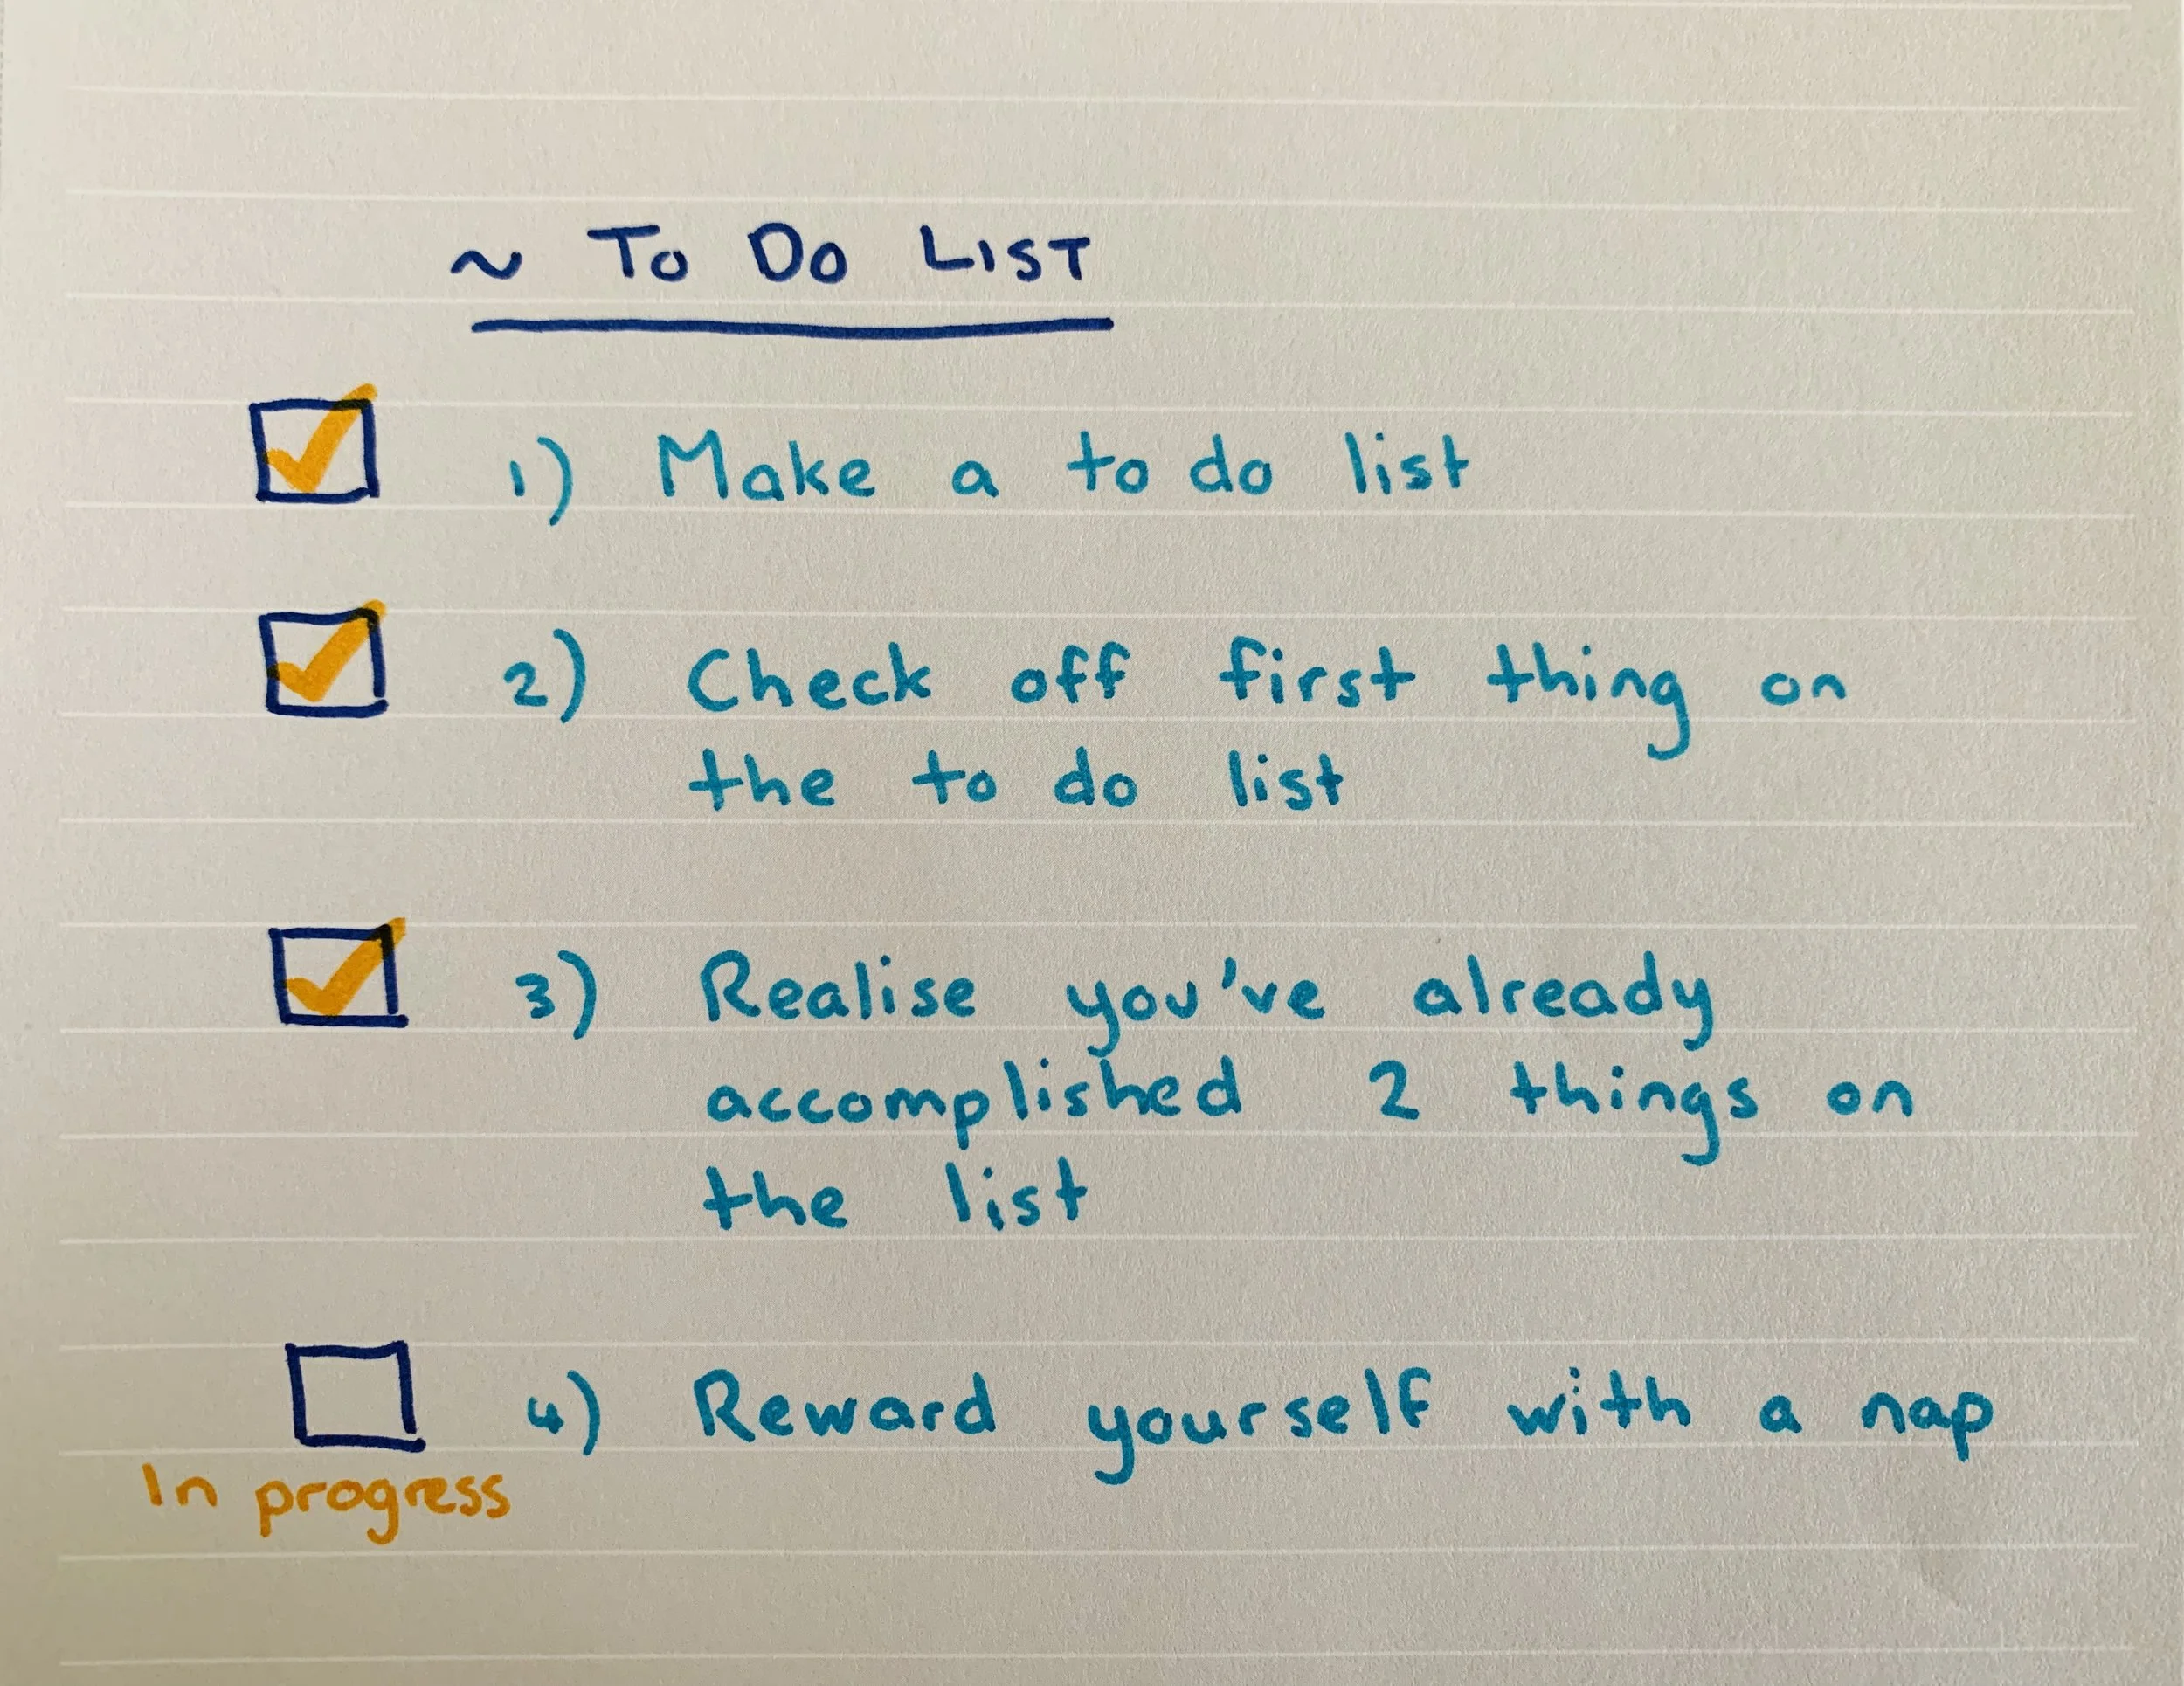 ~ To Do List
1) Make a to do list
2) Check off first thing on
the to do list
3) Realise you've already
accomplished 2 things on
the list
4) Reward yourself with a nap
In progress